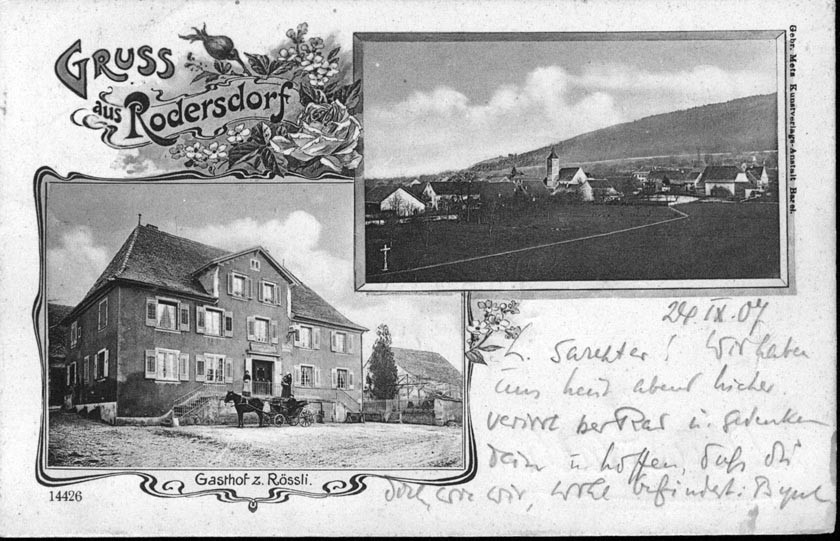 GRUSS
aus Rodersdorf
Gebr. Metz Kunstverlags-Anstalt Basel.
Gasthof z. Rössli.
14426
24 IX. 07
L. ! Wir haben
uns heut abend hieher
verirrt per Rad u. gedenken
Dein u. hoffen, daß du
doch, wie wir, wohl befindest.